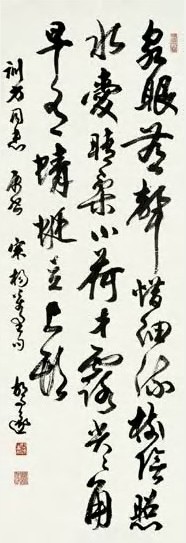 泉眼無聲惜細流樹陰照
水愛晴柔小荷才露尖〻角
早有蜻蜓立上頭
同志 宋楊萬里句